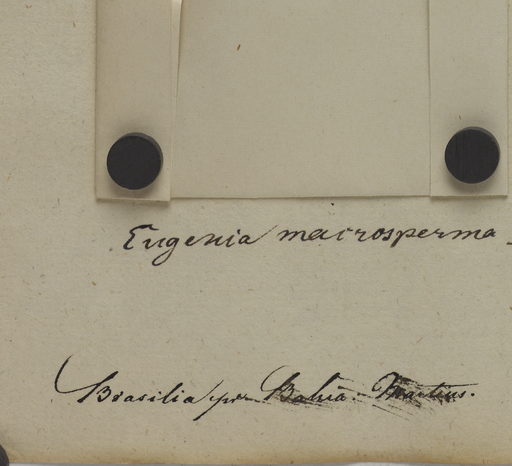 Eugenia macrosperma
Brasilia per Bahia. Martius.